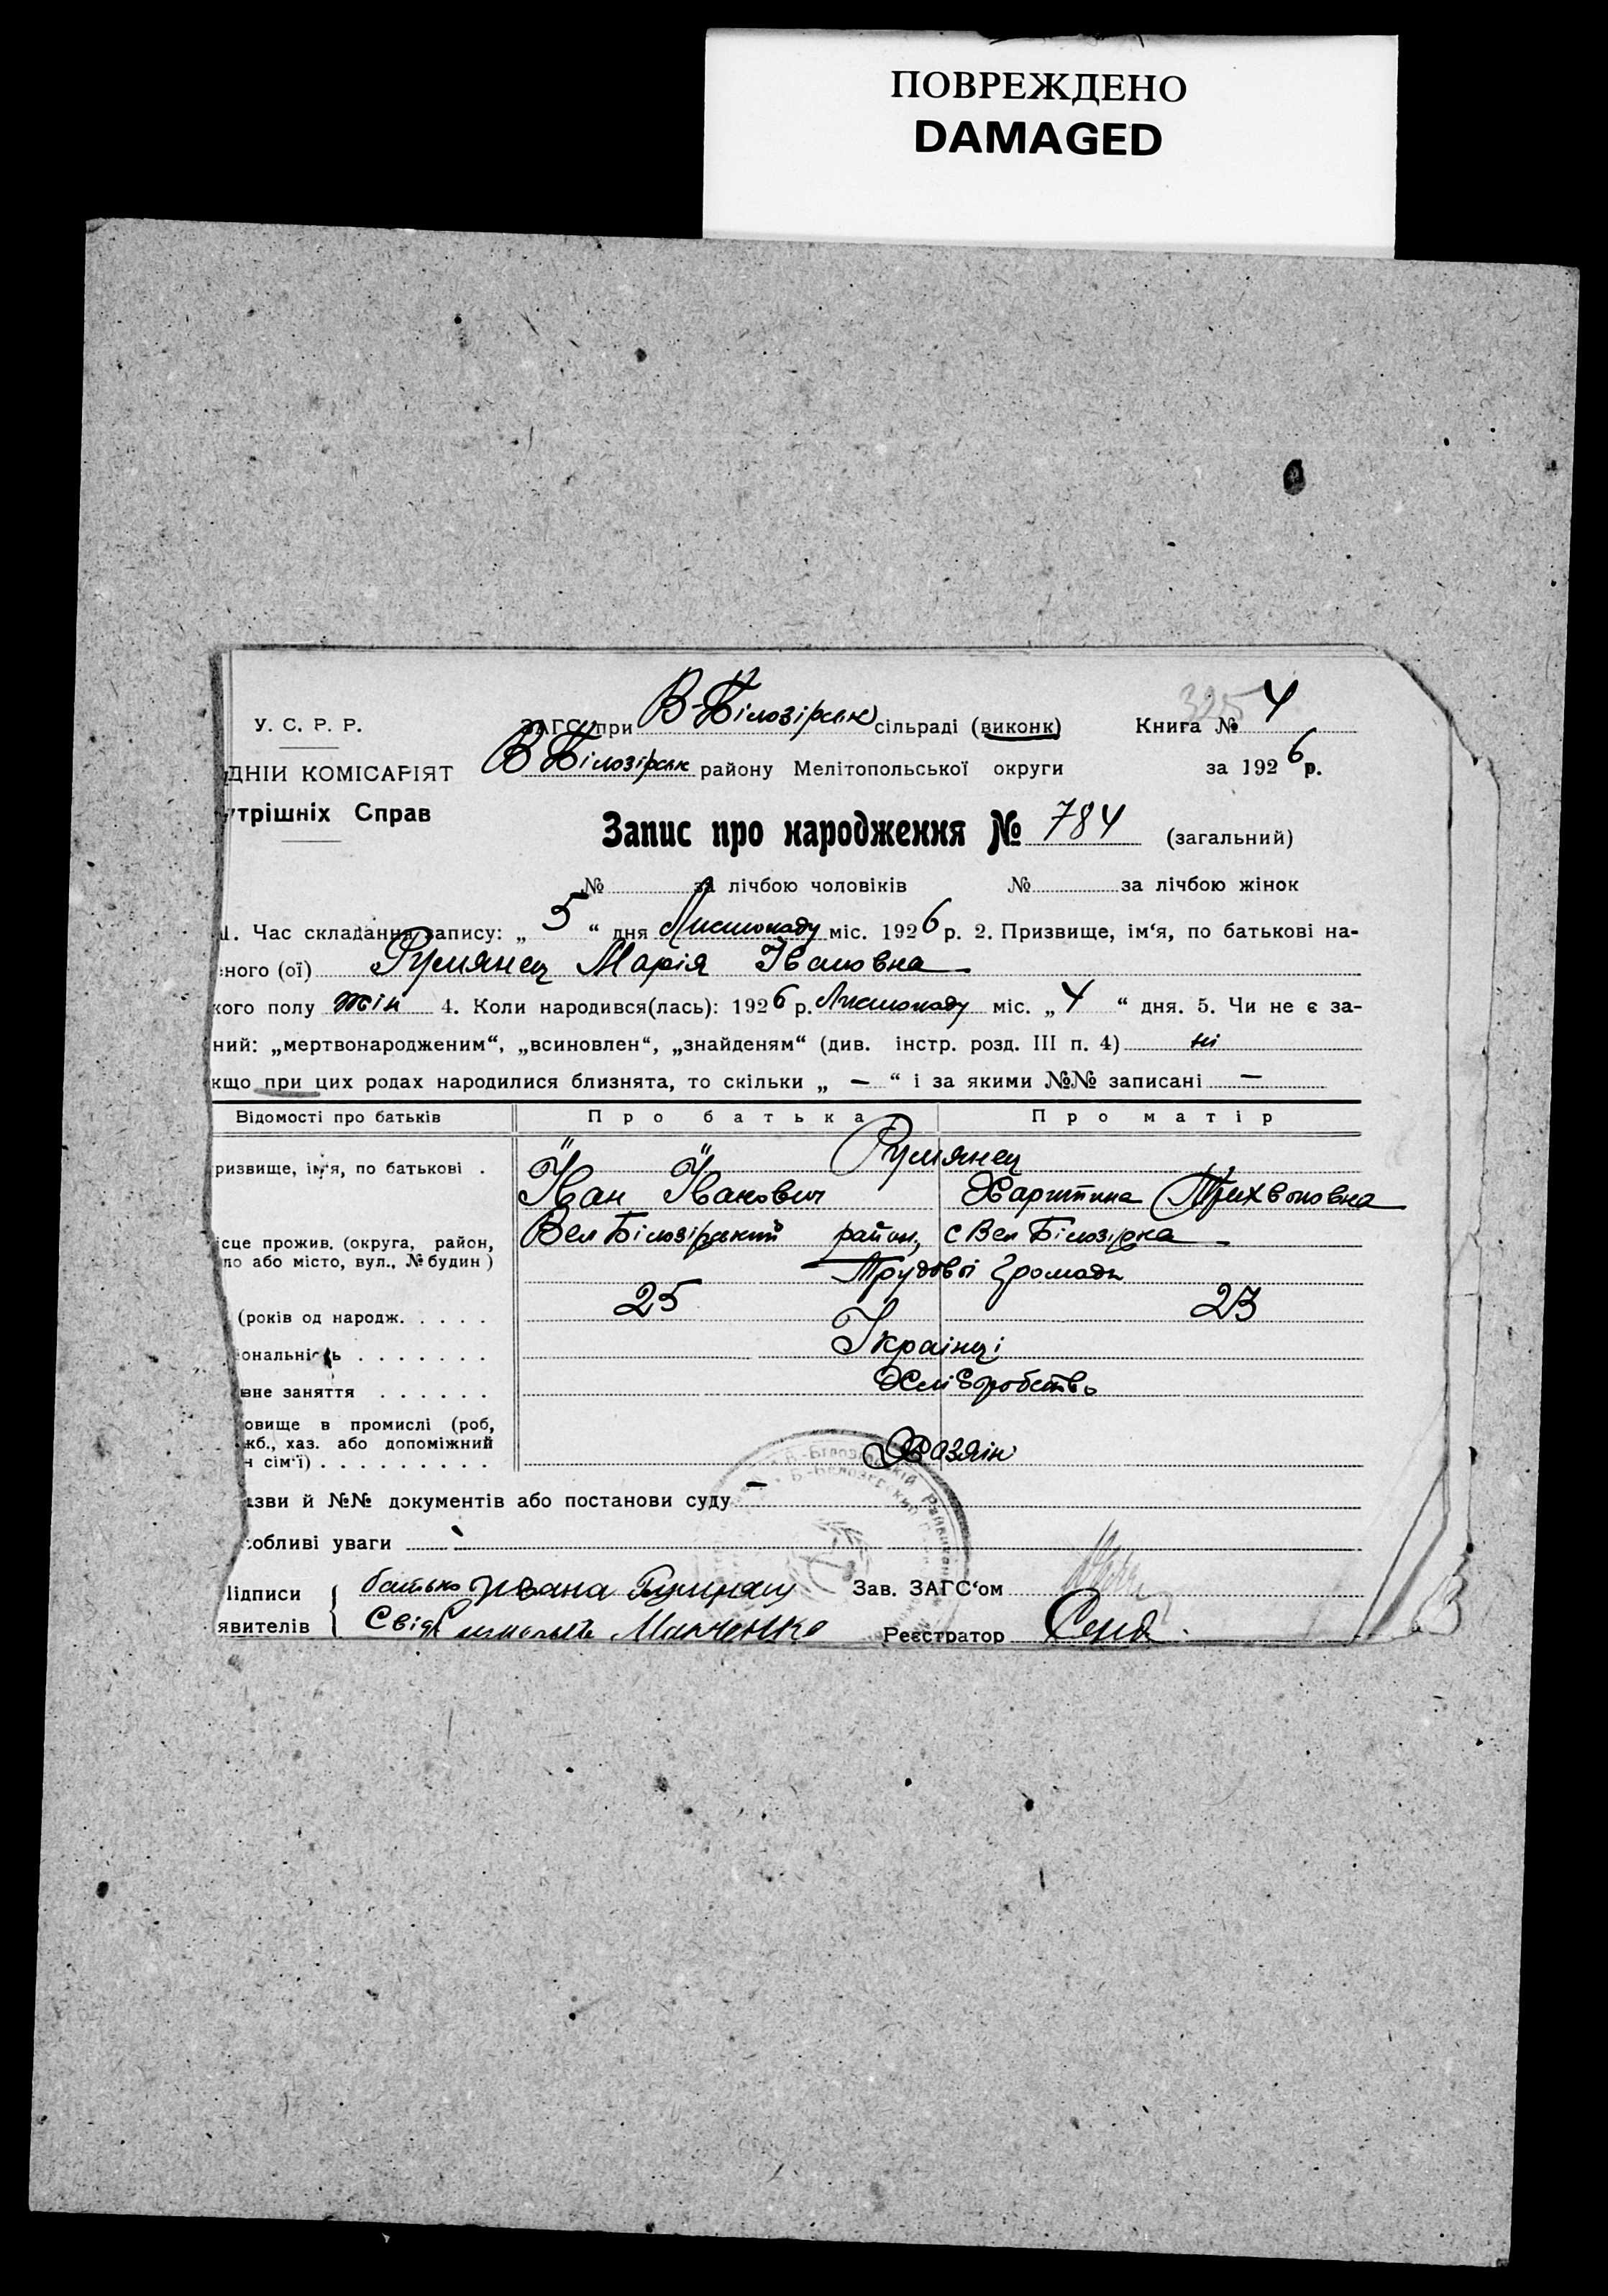 ПОВРЕЖДЕНО
DAMAGED
У. С. Р. Р.
ЗАГС при В-Білозірськ сільраді (виконк)
Книга № 4
325
ДНІЙ КОМІСАРІЯТ
В Білозірськ району Мелітопольської округи
за 1926 р.
утрішніх Справ
Запис про народження № 784 (загальний)
№ за лічбою чоловіків № за лічбою жінок
1. Час складання запису: „ 5 “ дня Листопаду міс. 1926 р. 2. Призвище, ім‘я, по батькові на-
ного (ої) Румянец Марія Івановна
кого полу жін 4. Коли народився(лась): 1926 р. Листопаду міс. „ 4 “ дня. 5. Чи не є за-
ний: „мертвонародженим“, „всиновлен“, „знайденям“ (див. інстр. розд. III п. 4) ні
кщо при цих родах народилися близнята, то скільки „ — “ і за якими №№ записані —
Відомості про батьків Про батька Про матір
ризвище, ім‘я, по батькові . Румянец
Іван Іванович Харитина Трихвоновна
ісце прожив. (округа, район, Вел Білозірський район, с Вел Білозірка
ло або місто, вул., № будин) Трудовоі Громади
(років од народж. . . . . 25 23
ональність . . . . . . . Українці
вне заняття . . . . . . Хліборобство
овище в промислі (роб,
жб., хаз. або допоміжний
н сім‘ї) . . . . . . . . . Хазяін
азви й №№ документів або постанови суду —
собливі уваги
Підписи батько Зав. ЗАГС‘ом
явителів Реєстратор